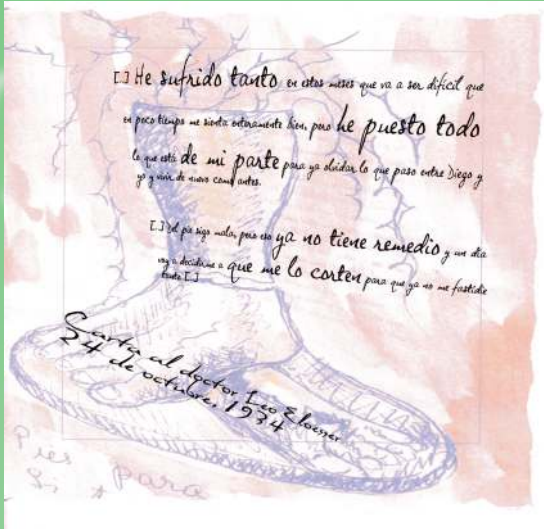 [..] He sufrido tanto en estos meses que va a ser difícil que
en poco tiempo me sienta enteramente bien, pero he puesto todo
lo que está de mi parte para ya olvidar lo que paso entre Diego y
yo y vivir de nuevo como antes.
[..] Del pie sigo mala, pero eso ya no tiene remedio y un día
voy a decidirme a que me lo corten para que ya no me fastidie
tanto [..]
Carta al doctor Leo Eloesser
24 de octubre, 1934
Pies
para